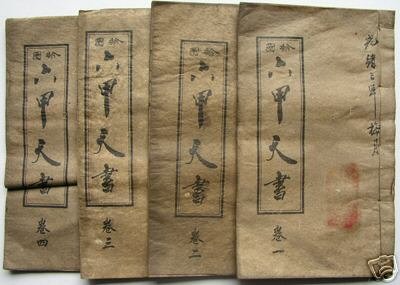 光緒三年 梅月
繪圖
六甲天書
卷一
繪圖
六甲天書
卷二
繪圖
六甲天書
卷三
繪圖
六甲天書
卷四